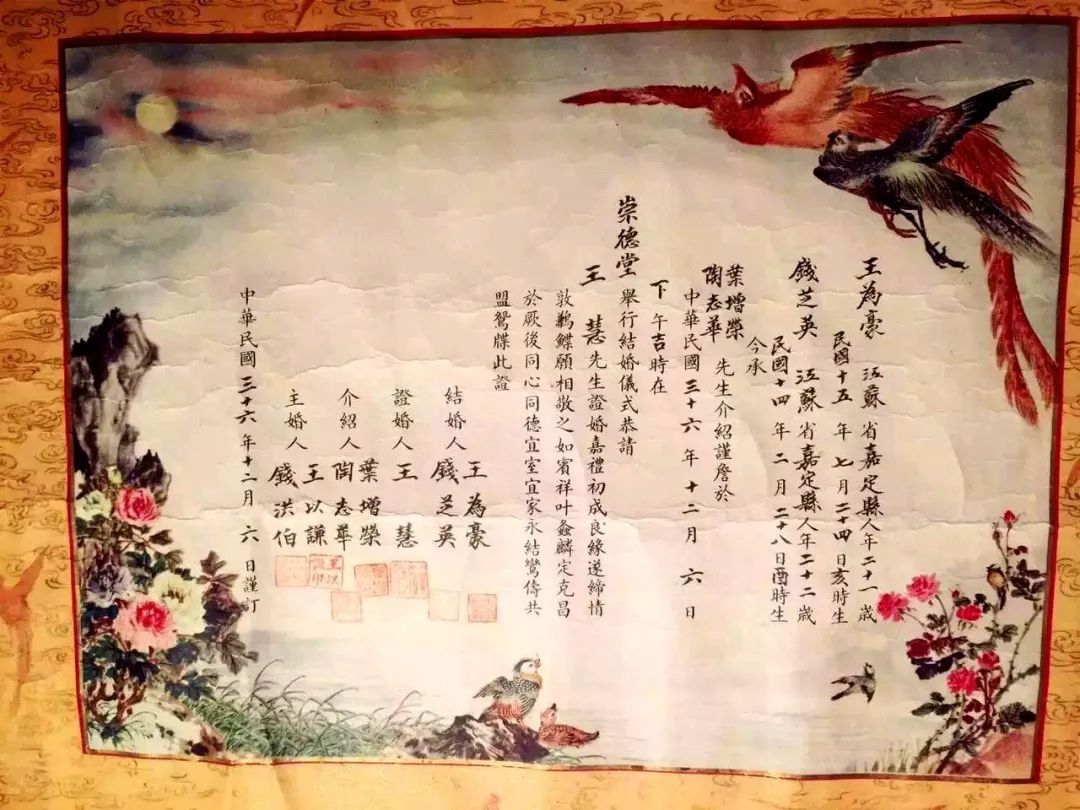 王為豪 江蘇省嘉定縣人年二十一歲
民國十五年七月二十四日亥時生
錢芝英 江蘇省嘉定縣人年二十二歲
民國十四年二月二十八日酉時生
今承
葉增榮
陶志華 先生介紹謹詹於
中華民國三十六年十二月六日
下午吉時在
崇德堂舉行結婚儀式恭請
王慧先生證婚嘉禮初成良緣遂締情
敦鶼鰈願相敬之如賓祥叶螽麟定克昌
於厥後同心同德宜室宜家永結鸞儔共
盟鴛牒此證
結婚人 王為豪
錢芝英
證婚人 王慧
介紹人 葉增榮
陶志華
主婚人 王以謙
錢洪伯
中華民國三十六年十二月六日謹訂